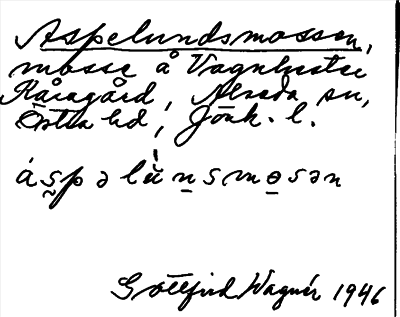 Aspelundsmossen,
mosse å Vagnhester
Råsagård, Alseda sn,
Östra hd, Jönk. l.
áspəlùnsmosən
Gottfrid Wagnér 1946